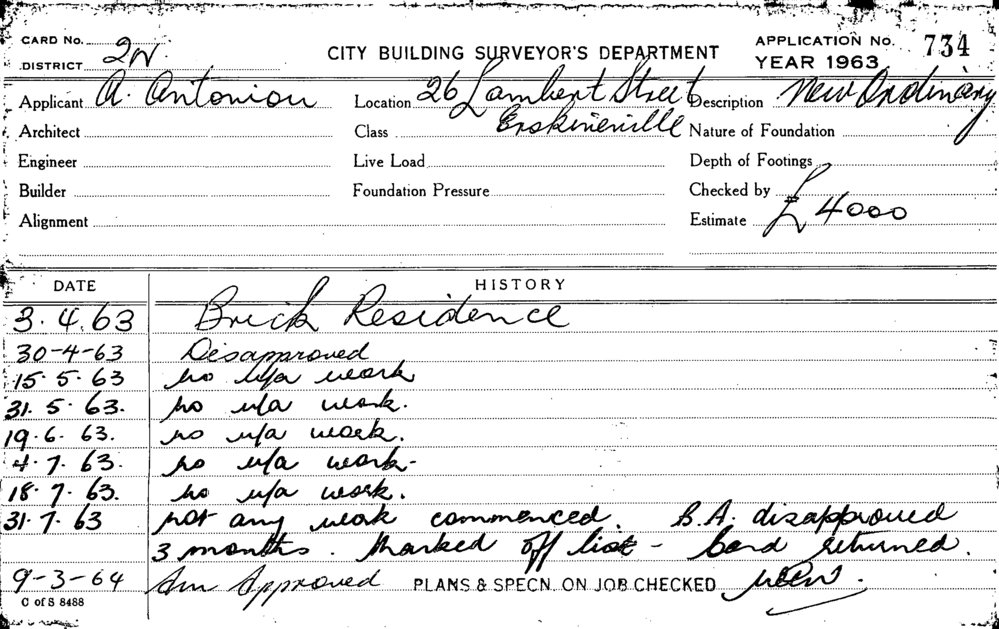 CARD No.
DISTRICT 2W.
CITY BUILDING SURVEYOR'S DEPARTMENT
APPLICATION No. 734
YEAR 1963
Applicant A. Antoniou Location 26 Lambert Street Description New Ordinary
Architect Class Erskineville Nature of Foundation
Engineer Live Load Depth of Footings
Builder Foundation Pressure Checked by
Alignment Estimate £4000
DATE HISTORY
3.4.63 Brick Residence
30-4-63 Disapproved
15.5.63 no u/a work
31.5.63. no u/a work.
19.6.63. no u/a work.
4.7.63. no u/a work-
18.7.63. no u/a work.
31.7.63 not any work commenced. B.A. disapproved
3 months. Marked off list - Card returned.
9-3-64 Approved PLANS & SPECN. ON JOB CHECKED
C of S 8488